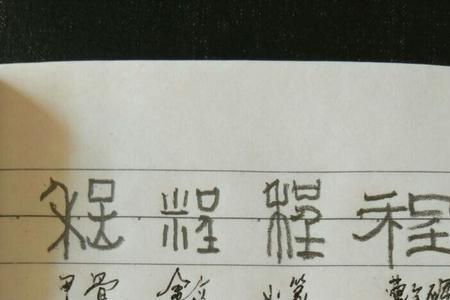 程 程 程 程
甲骨 金文 小篆